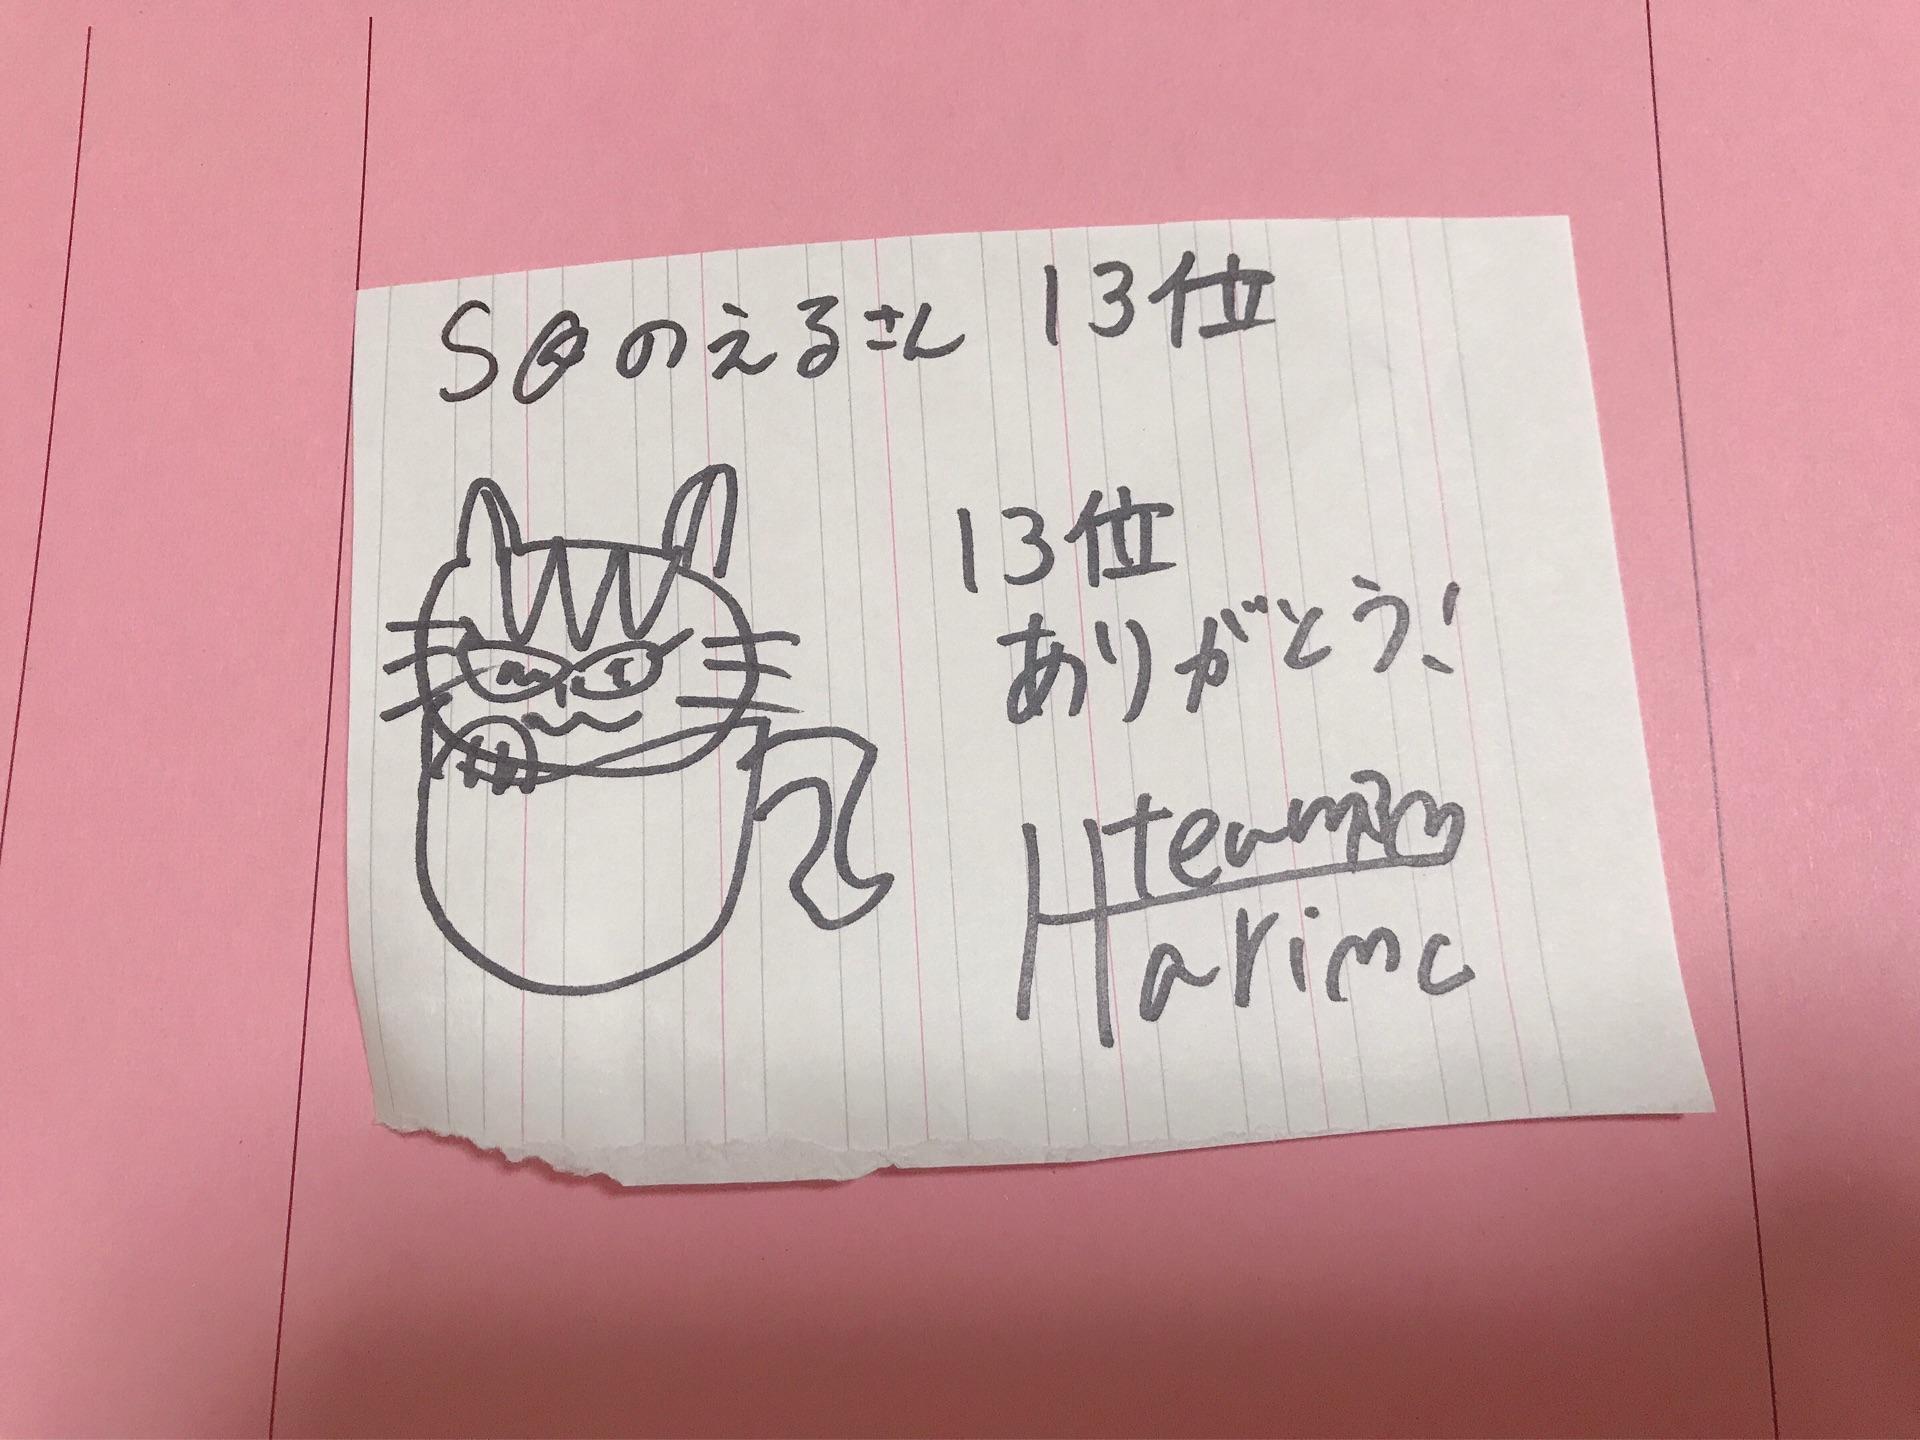 S@のえるさん 13位
13位
ありがとう!
team
Harimc